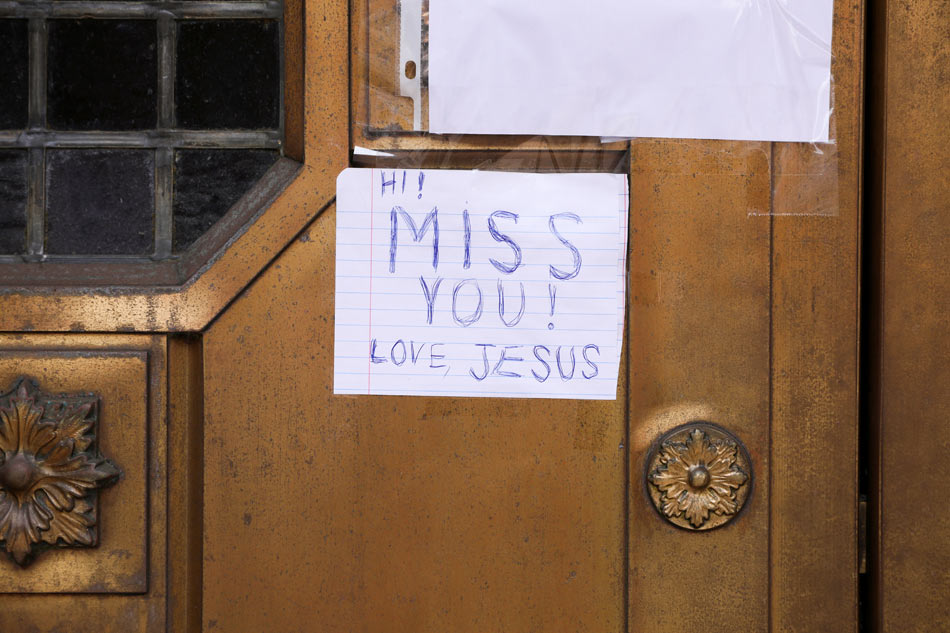 HI!
MISS
YOU!
LOVE, JESUS